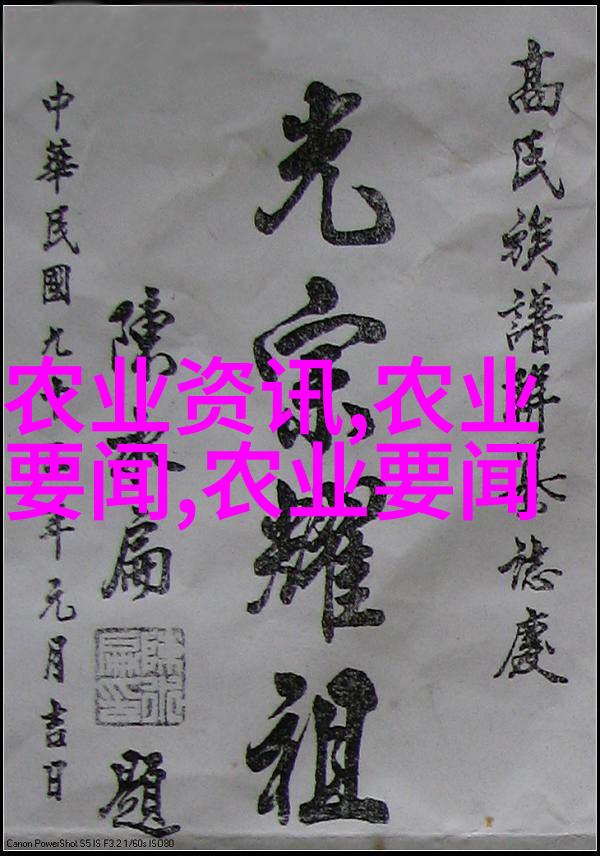 高氏族譜誌慶
光宗耀祖
陳水扁
陳水扁印
題
中華民國九十年元月吉日
农业资讯,农业
要闻,农业要闻
Canon PowerShot S5 IS F3.2 1/60s ISO80